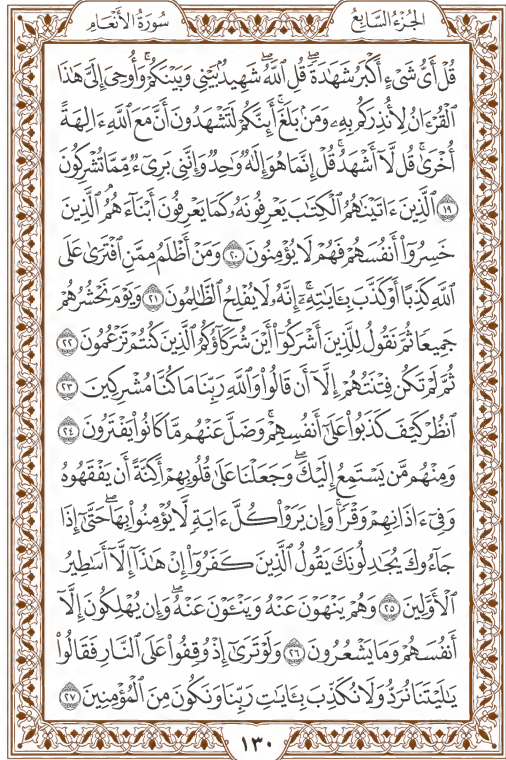 الجُزْءُ السَّابِعُ
سُورَةُ الأَنْعَامِ
قُلْ أَيُّ شَيْءٍ أَكْبَرُ شَهَٰدَةًۖ قُلِ ٱللَّهُۖ شَهِيدُۢ بَيْنِي وَبَيْنَكُمْۚ وَأُوحِيَ إِلَيَّ هَٰذَا
ٱلْقُرْءَانُ لِأُنذِرَكُم بِهِۦ وَمَنۢ بَلَغَۚ أَئِنَّكُمْ لَتَشْهَدُونَ أَنَّ مَعَ ٱللَّهِ ءَالِهَةً
أُخْرَىٰۚ قُل لَّآ أَشْهَدُۚ قُلْ إِنَّمَا هُوَ إِلَٰهٌ وَٰحِدٌ وَإِنَّنِي بَرِيٓءٌ مِّمَّا تُشْرِكُونَ
١٩ ٱلَّذِينَ ءَاتَيْنَٰهُمُ ٱلْكِتَٰبَ يَعْرِفُونَهُۥ كَمَا يَعْرِفُونَ أَبْنَآءَهُمُۘ ٱلَّذِينَ
خَسِرُوٓا۟ أَنفُسَهُمْ فَهُمْ لَا يُؤْمِنُونَ ٢٠ وَمَنْ أَظْلَمُ مِمَّنِ ٱفْتَرَىٰ عَلَى
ٱللَّهِ كَذِبًا أَوْ كَذَّبَ بِـَٔايَٰتِهِۦٓۚ إِنَّهُۥ لَا يُفْلِحُ ٱلظَّٰلِمُونَ ٢١ وَيَوْمَ نَحْشُرُهُمْ
جَمِيعًا ثُمَّ نَقُولُ لِلَّذِينَ أَشْرَكُوٓا۟ أَيْنَ شُرَكَآؤُكُمُ ٱلَّذِينَ كُنتُمْ تَزْعُمُونَ ٢٢
ثُمَّ لَمْ تَكُن فِتْنَتُهُمْ إِلَّآ أَن قَالُوا۟ وَٱللَّهِ رَبِّنَا مَا كُنَّا مُشْرِكِينَ ٢٣
ٱنظُرْ كَيْفَ كَذَبُوا۟ عَلَىٰٓ أَنفُسِهِمْۚ وَضَلَّ عَنْهُم مَّا كَانُوا۟ يَفْتَرُونَ ٢٤
وَمِنْهُم مَّن يَسْتَمِعُ إِلَيْكَۖ وَجَعَلْنَا عَلَىٰ قُلُوبِهِمْ أَكِنَّةً أَن يَفْقَهُوهُ
وَفِيٓ ءَاذَانِهِمْ وَقْرًاۚ وَإِن يَرَوْا۟ كُلَّ ءَايَةٍ لَّا يُؤْمِنُوا۟ بِهَاۖ حَتَّىٰٓ إِذَا
جَآءُوكَ يُجَٰدِلُونَكَ يَقُولُ ٱلَّذِينَ كَفَرُوٓا۟ إِنْ هَٰذَآ إِلَّآ أَسَٰطِيرُ
ٱلْأَوَّلِينَ ٢٥ وَهُمْ يَنْهَوْنَ عَنْهُ وَيَنْـَٔوْنَ عَنْهُۖ وَإِن يُهْلِكُونَ إِلَّآ
أَنفُسَهُمْ وَمَا يَشْعُرُونَ ٢٦ وَلَوْ تَرَىٰٓ إِذْ وُقِفُوا۟ عَلَى ٱلنَّارِ فَقَالُوا۟
يَٰلَيْتَنَا نُرَدُّ وَلَا نُكَذِّبَ بِـَٔايَٰتِ رَبِّنَا وَنَكُونَ مِنَ ٱلْمُؤْمِنِينَ ٢٧
١٣٠